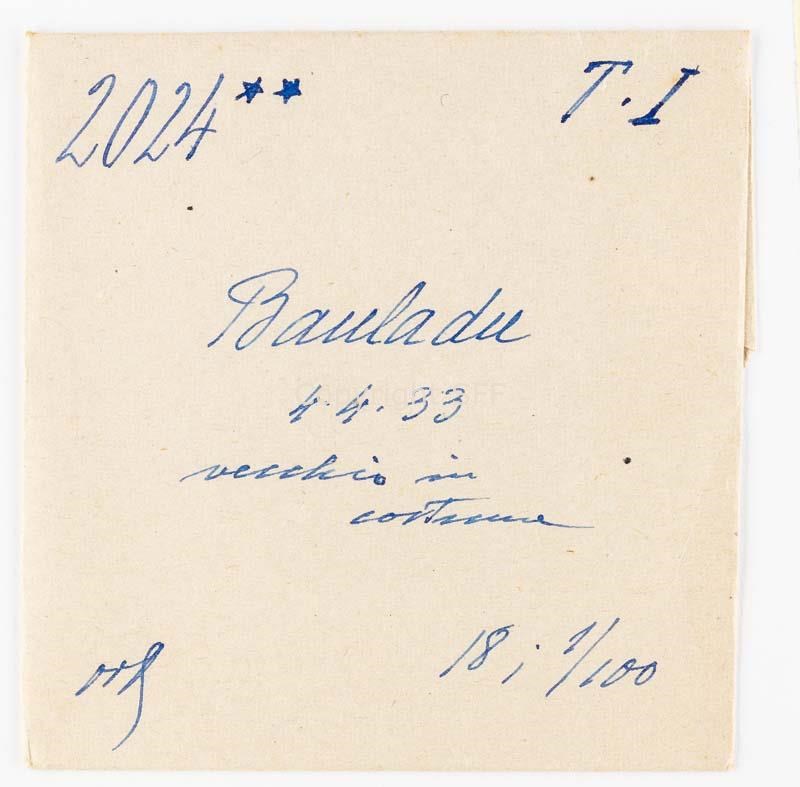 2024** T.I
Bauladu
4.4.33
vecchio in
costume
18; 1/100